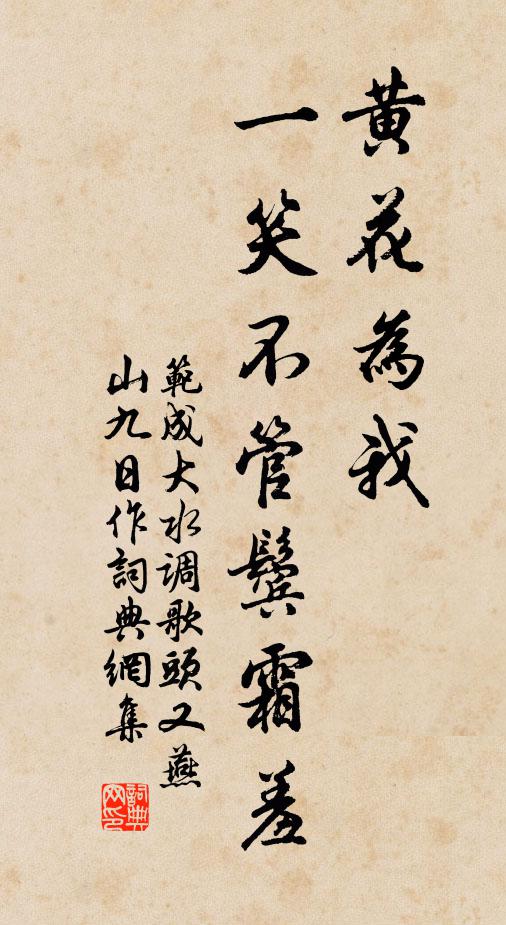 黄花為我
一笑不管鬢霜羞
範成大水调歌頭又燕
山九日作詞典網集
詞典
网印